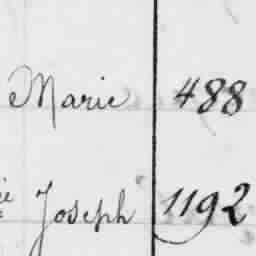 Marie 488
Joseph 1192